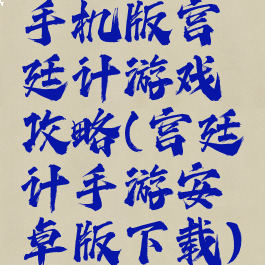 手机版宫
廷计游戏
攻略(宫廷
计手游安
卓版下载)